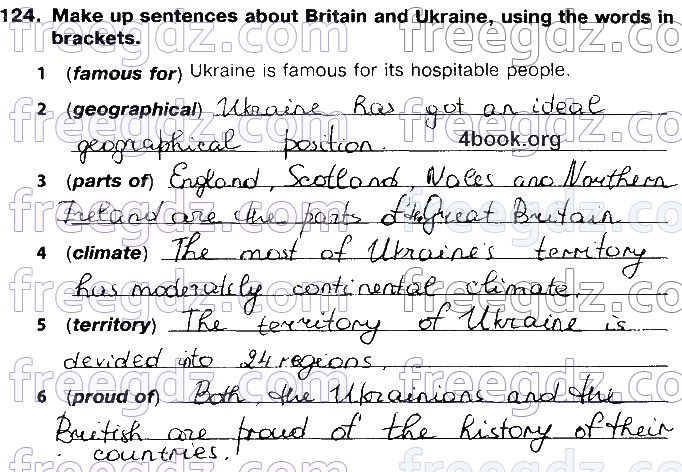 124. Make up sentences about Britain and Ukraine, using the words in
brackets.
1 (famous for) Ukraine is famous for its hospitable people.
2 (geographical) Ukraine has got an ideal
geographical position.
4book.org
3 (parts of) England, Scotland, Wales and Nourthern
Ireland are the parts of the Great Britain.
4 (climate) The most of Ukraine's territory
has moderately continental climate.
5 (territory) The territory of Ukraine is
devided into 24 regions.
6 (proud of) Both, the Ukrainions and the
British are proud of the history of their
countries.
freegdz.com